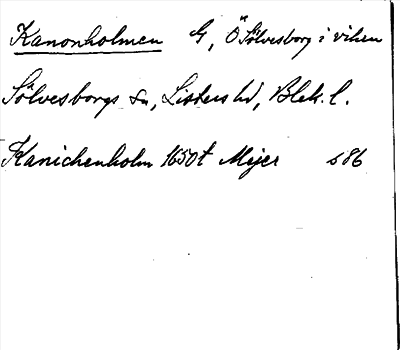 Kanonholmen G, Ö Sölvesborg i viken
Sölvesborgs sn, Listers hd, Blek. l.
Kanichenholm 1650t Mejer s 86